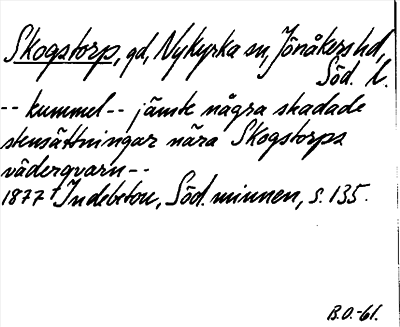 Skogstorp, gd, Nykyrka sn, Jönåkers hd,
Söd. l.
-- kummel -- jämte några skadade
stensättningar nära Skogstorps
väderqvarn--
1877 Indebetou, Söd. minnen, s. 135.
B.O.-61.